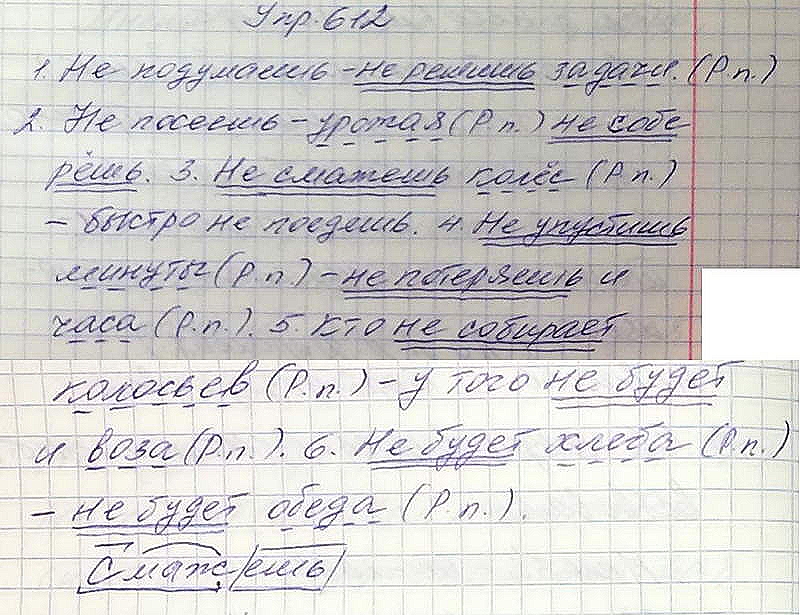 Упр. 612
1. Не подумаешь - не решишь задачи. (Р.п.)
2. Не посеешь - урожая (Р.п.) не собе
рёшь. 3. Не смажешь колёс (Р.п.)
- быстро не поедешь. 4 Не упустишь
минуты (Р.п.) - не потеряешь и
часа (Р.п.). 5. Кто не собирает
колосьев (Р.п.) - у того не будет
и воза (Р.п.). 6. Не будет хлеба (Р.п.)
- не будет обеда (Р.п.).
Смаж/ешь/